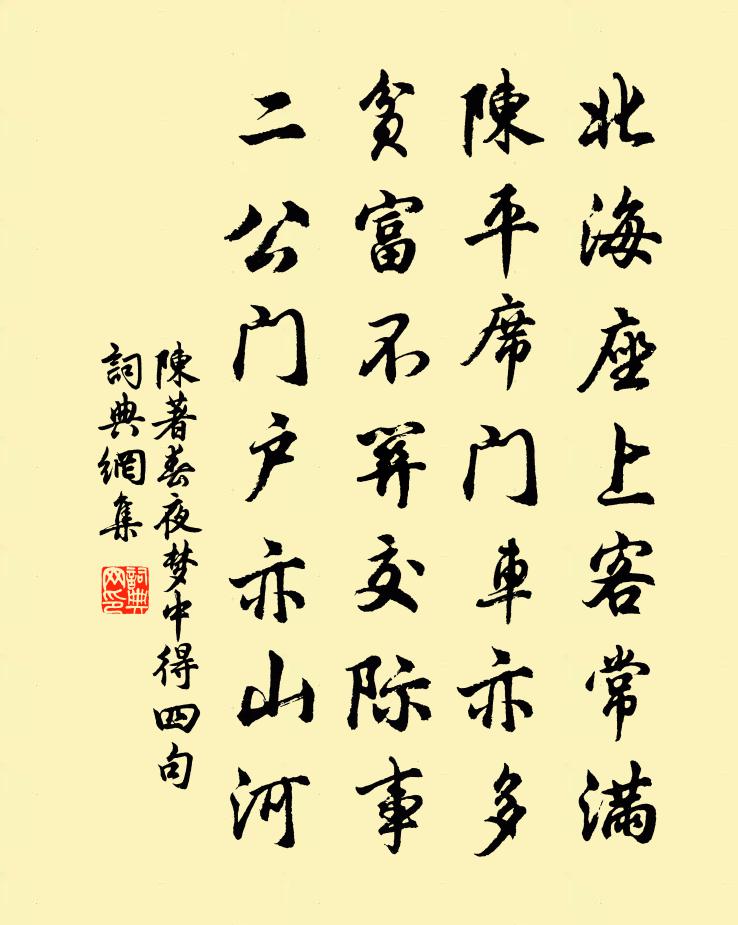 北海座上客常滿
陳平席門車亦多
貧富不關交际事
二公門户亦山河
陳著春夜梦中得四句
詞典網集
詞典网印